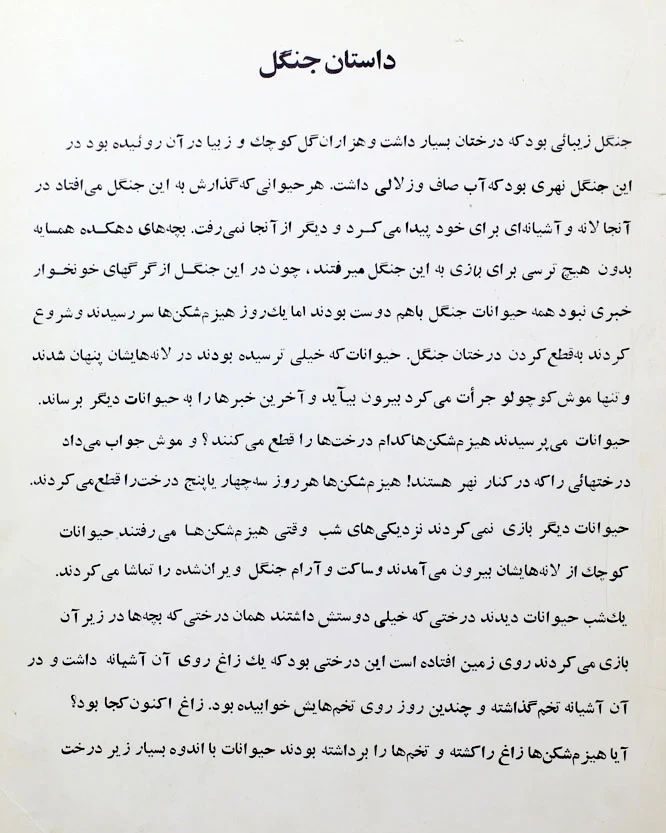 داستان جنگل
جنگل زیبائی بود که درختان بسیار داشت و هزاران گل کوچك و زیبا در آن روئیده بود در
این جنگل نهری بود که آب صاف و زلالی داشت. هر حیوانی که گذارش به این جنگل می‌افتاد در
آنجا لانه و آشیانه‌ای برای خود پیدا می‌کـرد و دیگر از آنجا نمی‌رفت. بچه‌های دهکده همسایه
بدون هیچ ترسی برای بازی به این جنگل میرفتند، چون در این جنگـل از گرگهای خونخـوار
خبری نبود همه حیوانات جنگل باهم دوست بودند اما یك‌روز هیزم‌شکن‌ها سر رسیدند و شروع
کردند به‌قطع کردن درختان جنگل. حیوانات که خیلی ترسیده بودند در لانه‌هایشان پنهان شدند
و تنها موش کوچولو جرأت می‌کرد بیرون بیآید و آخرین خبرها را به حیوانات دیگر برساند.
حیوانات می‌پرسیدند هیزم‌شکن‌ها کدام درخت‌ها را قطع می‌کنند؟ و موش جواب می‌داد
درختهائی را که در کنار نهر هستند! هیزم‌شکن‌ها هر روز سه‌چهار یا پنج درخت را قطع می‌کردند.
حیوانات دیگر بازی نمی‌کردند نزدیکی‌های شب وقتی هیزم‌شکن‌هـا می‌رفتند حیوانات
کوچك از لانه‌هایشان بیرون می‌آمدند و ساکت و آرام جنگل ویران‌شده را تماشا می‌کردند.
یك‌شب حیوانات دیدند درختی که خیلی دوستش داشتند همان درختی که بچه‌ها در زیر آن
بازی می‌کردند روی زمین افتاده است این درختی بود که یك زاغ روی آن آشیانه داشت و در
آن آشیانه تخم گذاشته و چندین روز روی تخم‌هایش خوابیده بود. زاغ اکنون کجا بود؟
آیا هیزم‌شکن‌ها زاغ را کشته و تخم‌ها را برداشته بودند حیوانات با اندوه بسیار زیر درخت